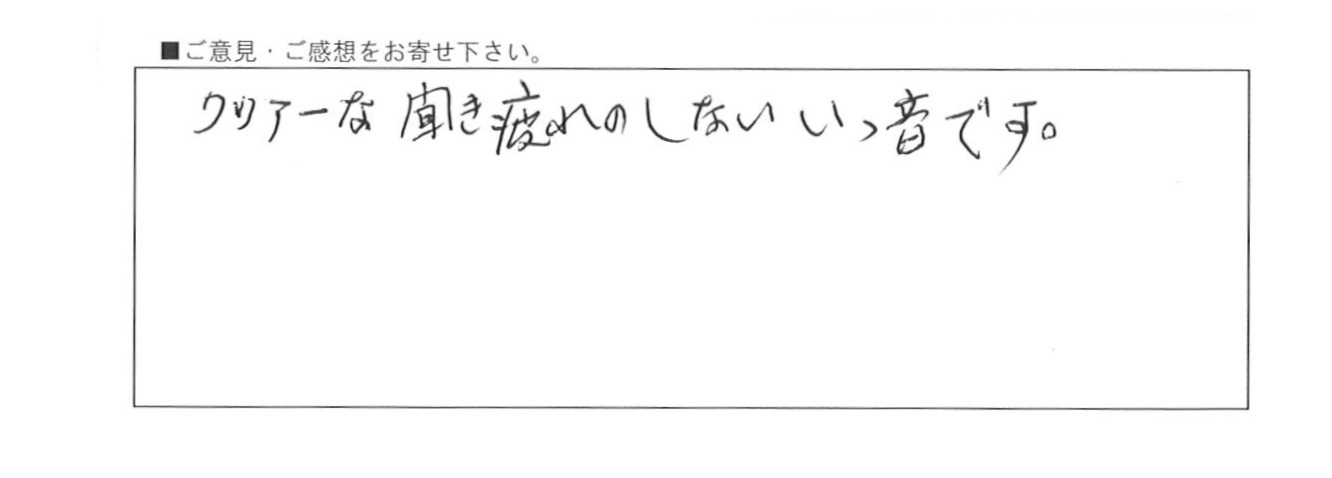 ■ご意見・ご感想をお寄せ下さい。
クリアーな聞き疲れのしないいい音です。